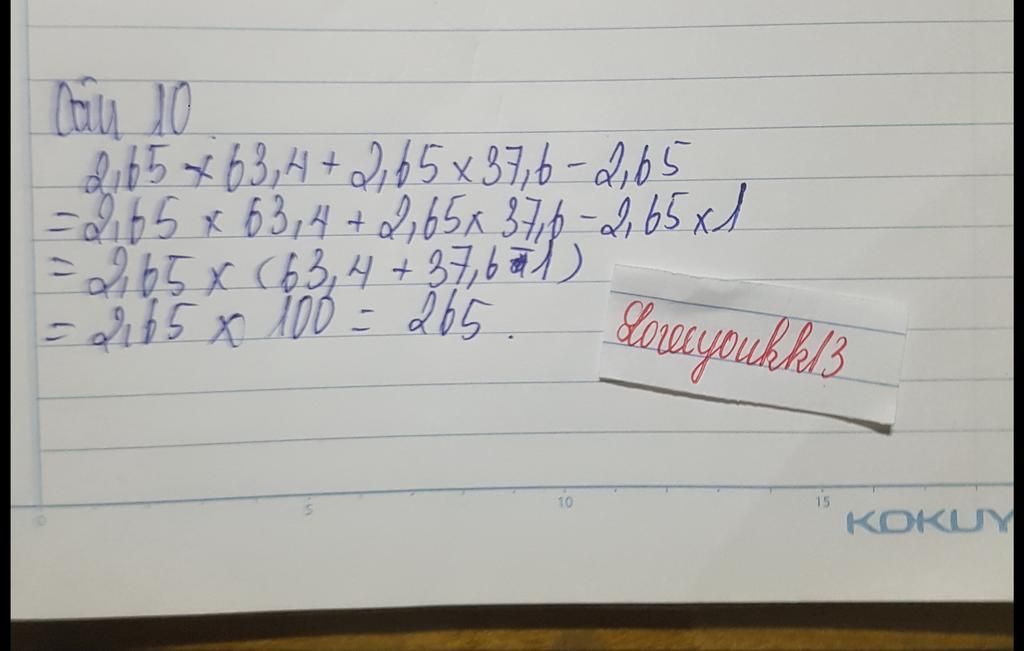 Câu 10.
2,65 × 63,4 + 2,65 × 37,6 - 2,65
= 2,65 × 63,4 + 2,65 × 37,6 - 2,65 × 1
= 2,65 × (63,4 + 37,6 - 1)
= 2,65 × 100 = 265.
0 5 10 15
KOKUY